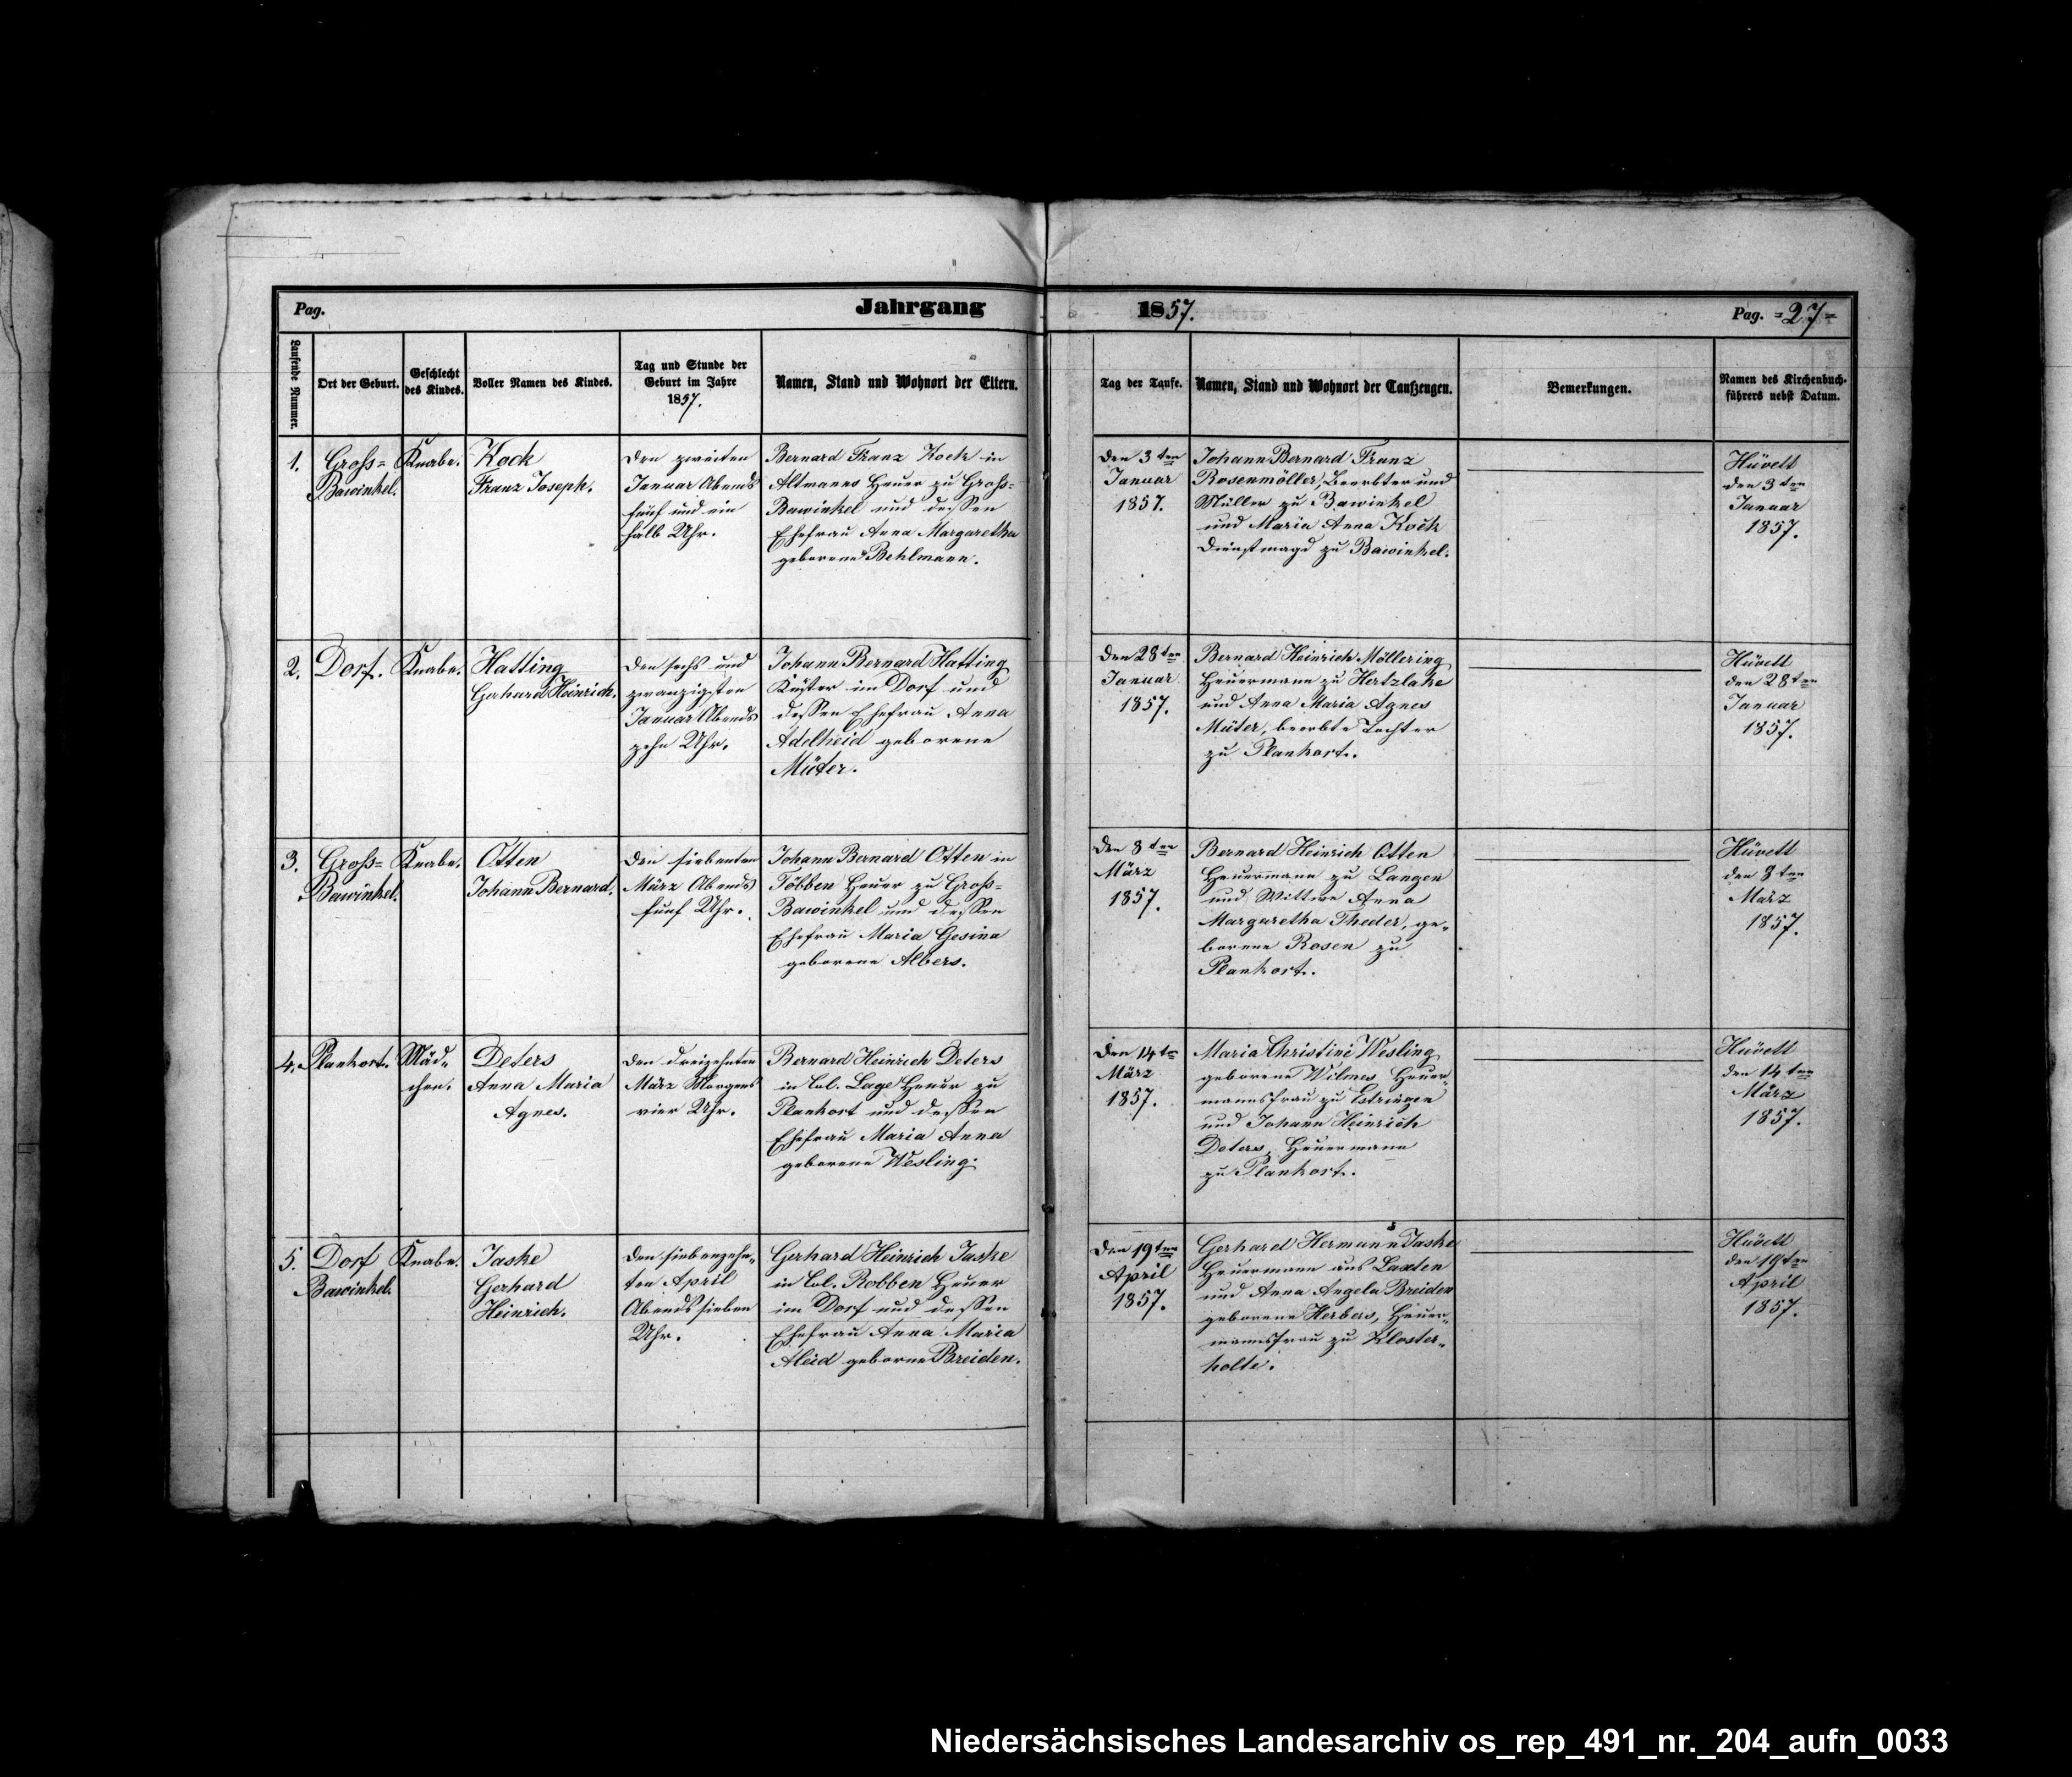 Pag.
Jahrgang 1857.
Pag. =27=
Laufende Nummer.
Ort der Geburt.
Geschlecht
des Kindes.
Voller Namen des Kindes.
Tag und Stunde der
Geburt im Jahre
1857.
Namen, Stand und Wohnort der Eltern.
Tag der Taufe.
Namen, Stand und Wohnort der Taufzeugen.
Bemerkungen.
Namen des Kirchenbuch-
führers nebst Datum.
1.
Gross=
Bawinkel.
Knabe.
Kock
Franz Joseph.
den zweiten
Januar Abends
fünf und ein
halb Uhr.
Bernard Franz Kock in
Altmanns Heuer zu Gross=
Bawinkel und dessen
Ehefrau Anna Margaretha
geborene Behlmann.
den 3ten
Januar
1857.
Johann Bernard Franz
Rosenmöller, Beerbter und
Müller zu Bawinkel
und Maria Anna Kock
Dienstmagd zu Bawinkel.
Hüvett
den 3ten
Januar
1857.
2.
Dorf.
Knabe.
Hatting
Gerhard Heinrich.
den sechs und
zwanzigsten
Januar Abends
zehn Uhr.
Johann Bernard Hatting
Küster im Dorf und
dessen Ehefrau Anna
Adelheid geborene
Müter.
den 28ten
Januar
1857.
Bernard Heinrich Möllering
Heuermann zu Hertzlake
und Anna Maria Agnes
Müter, beerbte Tochter
zu Plankort.
Hüvett
den 28ten
Januar
1857.
3.
Gross=
Bawinkel.
Knabe.
Otten
Johann Bernard.
den siebenten
März Abends
fünf Uhr.
Johann Bernard Otten in
Többen Heuer zu Gross=
Bawinkel und dessen
Ehefrau Maria Gesina
geborene Albers.
den 8ten
März
1857.
Bernard Heinrich Otten
Heuermann zu Langen
und Wittwe Anna
Margaretha Theder, ge„
borene Rosen zu
Plankort.
Hüvett
den 8ten
März
1857.
4.
Plankort.
Mäd„
chen.
Deters
Anna Maria
Agnes.
den dreizehnten
März Morgens
vier Uhr.
Bernard Heinrich Deters
in Col. Lage Heuer zu
Plankort und dessen
Ehefrau Maria Anna
geborene Wesling.
den 14te
März
1857.
Maria Christine Wesling
geborene Wilmes Heuer„
mannsfrau zu Estringen
und Johann Heinrich
Deters, Heuermann
zu Plankort.
Hüvett
den 14ten
März
1857.
5.
Dorf
Bawinkel.
Knabe.
Jaske
Gerhard
Heinrich.
den siebenzehn„
ten April
Abends sieben
Uhr.
Gerhard Heinrich Jaske
in Col. Robben Heuer
im Dorf und dessen
Ehefrau Anna Maria
Aleid geborne Breiden.
den 19ten
April
1857.
Gerhard Hermann Jaske
Heuermann aus Laxten
und Anna Angela Breiden
geborene Herbers, Heuer„
mannsfrau zu Kloster„
holte.
Hüvett
den 19ten
April
1857.
Niedersächsisches Landesarchiv os_rep_491_nr._204_aufn_0033